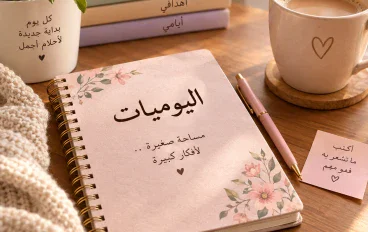 كل يوم
بداية جديدة
لأحلام أجمل
أهدافي
أيامي
اليوميات
مساحة صغيرة ..
لأفكار كبيرة
أكتب
ما تشعر به
فهو مهم